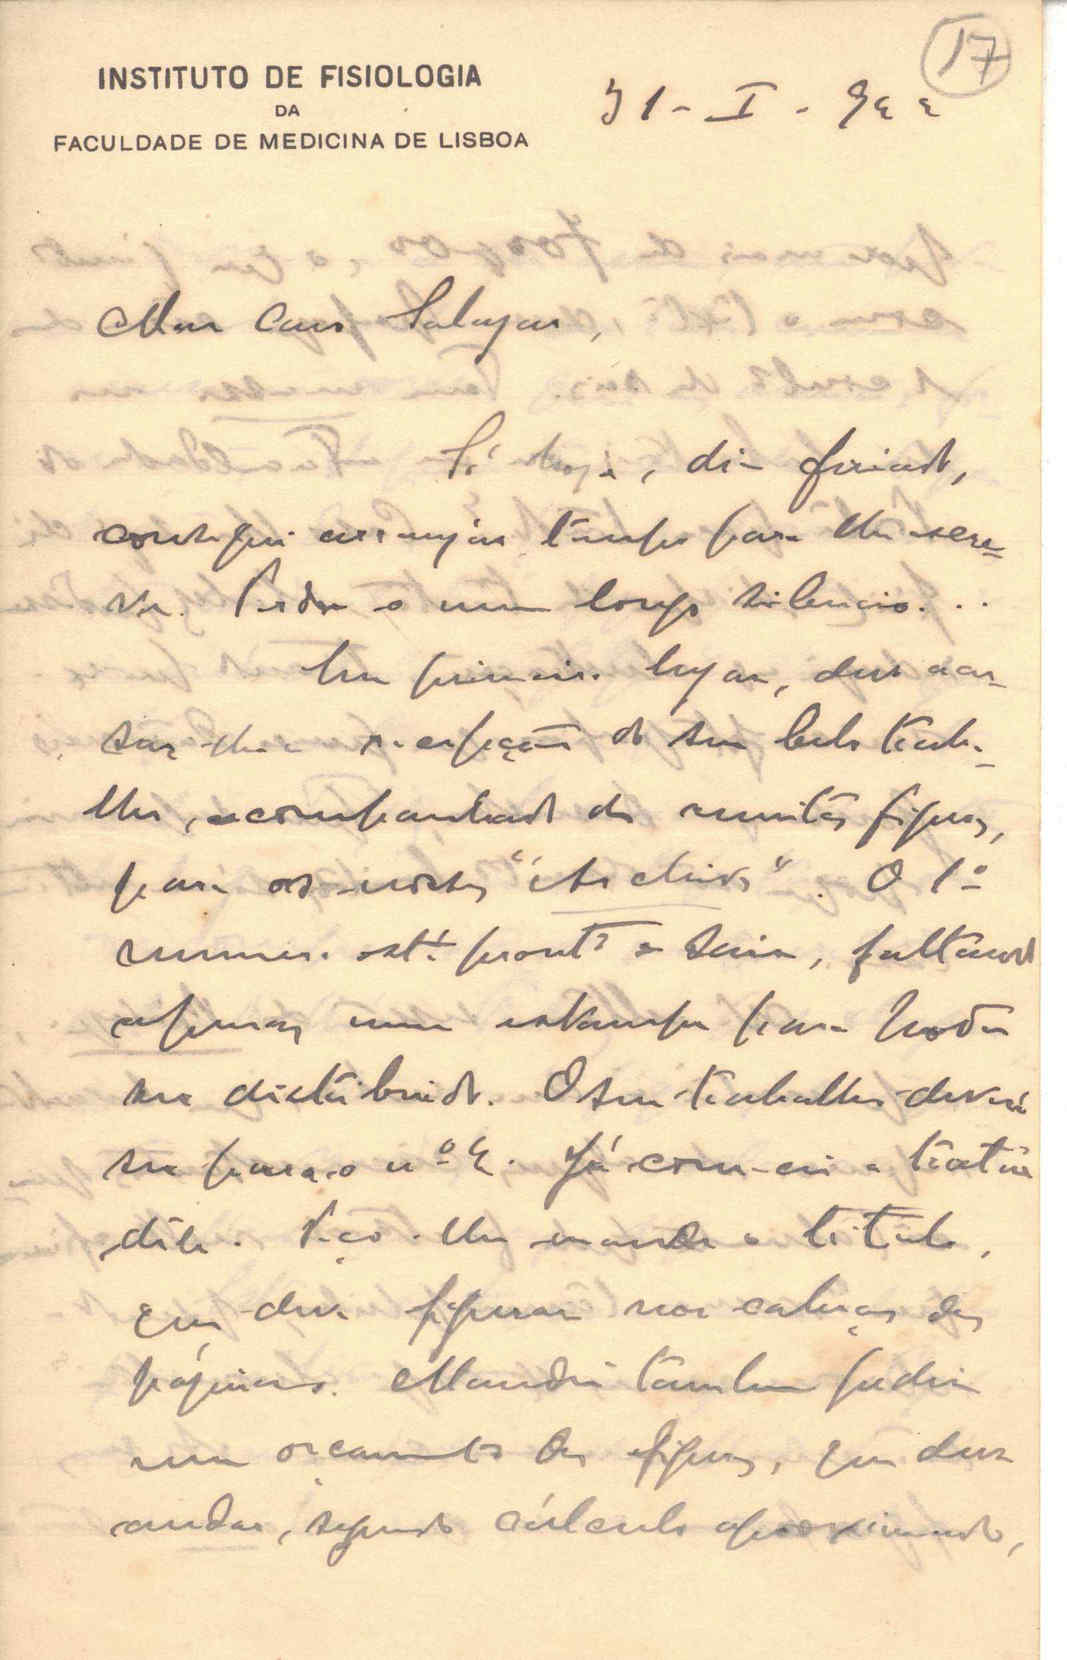 17
INSTITUTO DE FISIOLOGIA
DA
FACULDADE DE MEDICINA DE LISBOA
31-I-922
Meu Caro Salazar,
Só hoje, dia feriado,
consegui arranjar tempo para lhe escre-
ver. Perdoe o meu longo silencio...
Em primeiro lugar, devo acu-
sar-lhe a recepção do seu belo traba-
lho, acompanhado de muitas figuras,
para os nossos "Archivos". O 1º
numero está pronto a sair, faltando
apenas uma estampa para poder
ser distribuido. O seu trabalho deverá
ser para o nº 2. Já comecei a tratar
dêle. Peço-lhe mande o titulo,
que deve figurar nos cabeças das
páginas. Mandei tambem pedir
um orçamento das figuras, que deve
andar, segundo cálculo aproximado,